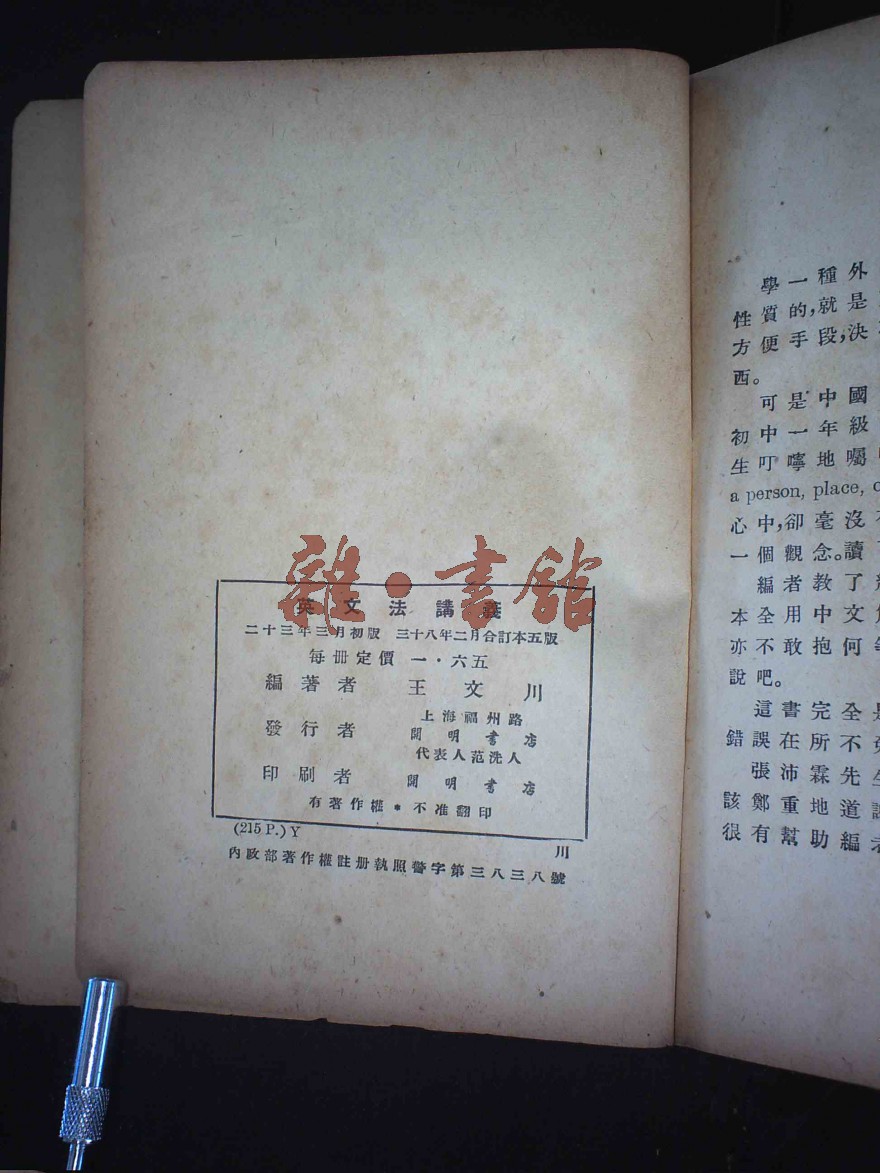 英文法講義
二十三年三月初版 三十八年二月合訂本五版
每冊定價 一·六五
編著者 王文川
上海福州路
發行者 開明書店
代表人范洗人
印刷者 開明書店
有著作權*不准翻印
(215 P.) Y
川
內政部著作權註册執照警字第三八三八號
雜·書館
學一種外
性質的,就是
方便手段,決
西。
可是中國
初中一年級
生叮嚀地囑
a person, place,
心中,卻毫沒
一個觀念。讀
編者教了
本全用中文
亦不敢抱何
說吧。
這書完全是
錯誤在所不
張沛霖先生
該鄭重地道
很有幫助編者